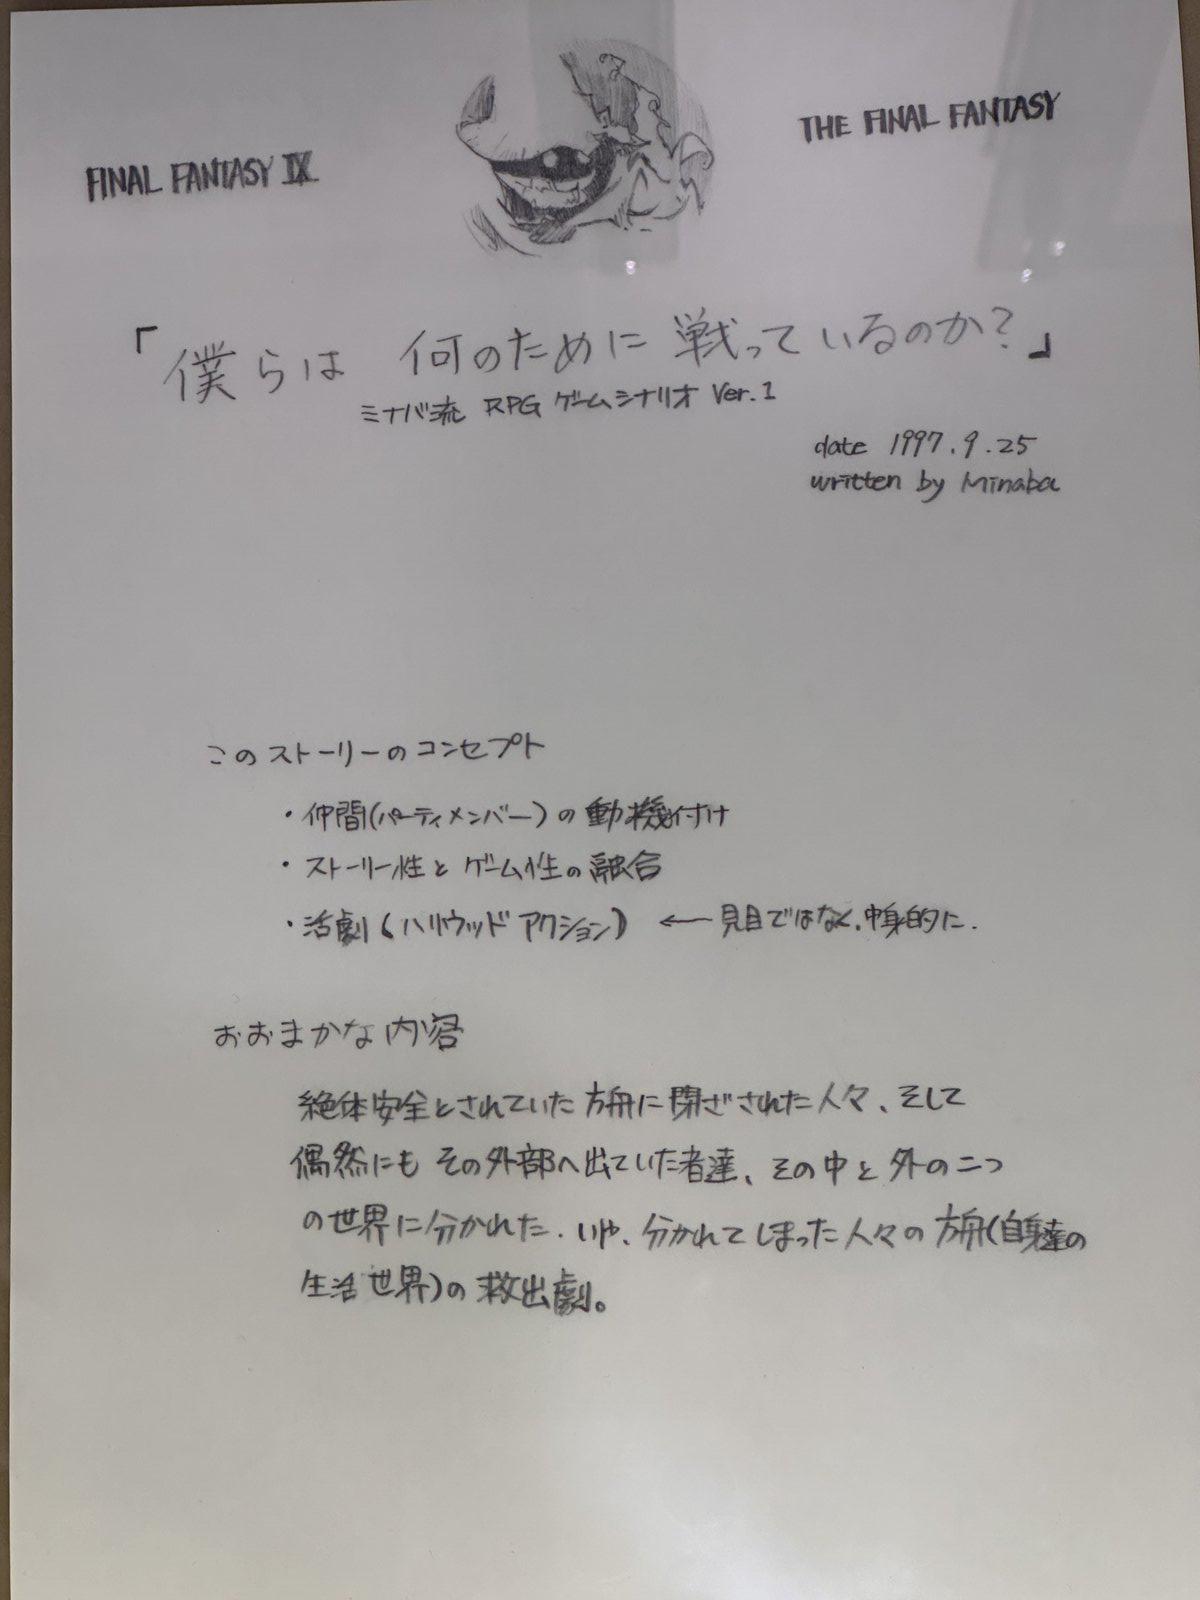 FINAL FANTASY IX
THE FINAL FANTASY
「僕らは 何のために 戦っているのか?」
ミナバ流 RPG ゲームシナリオ Ver.1
date 1997.9.25
written by Minaba
このストーリーのコンセプト
・仲間(パーティメンバー)の動機付け
・ストーリー性と ゲーム性の融合
・活劇(ハリウッド アクション) ← 見目ではなく、中身的に.
おおまかな内容
絶体安全とされていた 方舟に閉ざされた人々、そして
偶然にも その外部へ出ていた者達、その中と外の二つ
の世界に分かれた. いや、分かれてしまった人々の 方舟(自身達の
生活世界)の 救出劇。